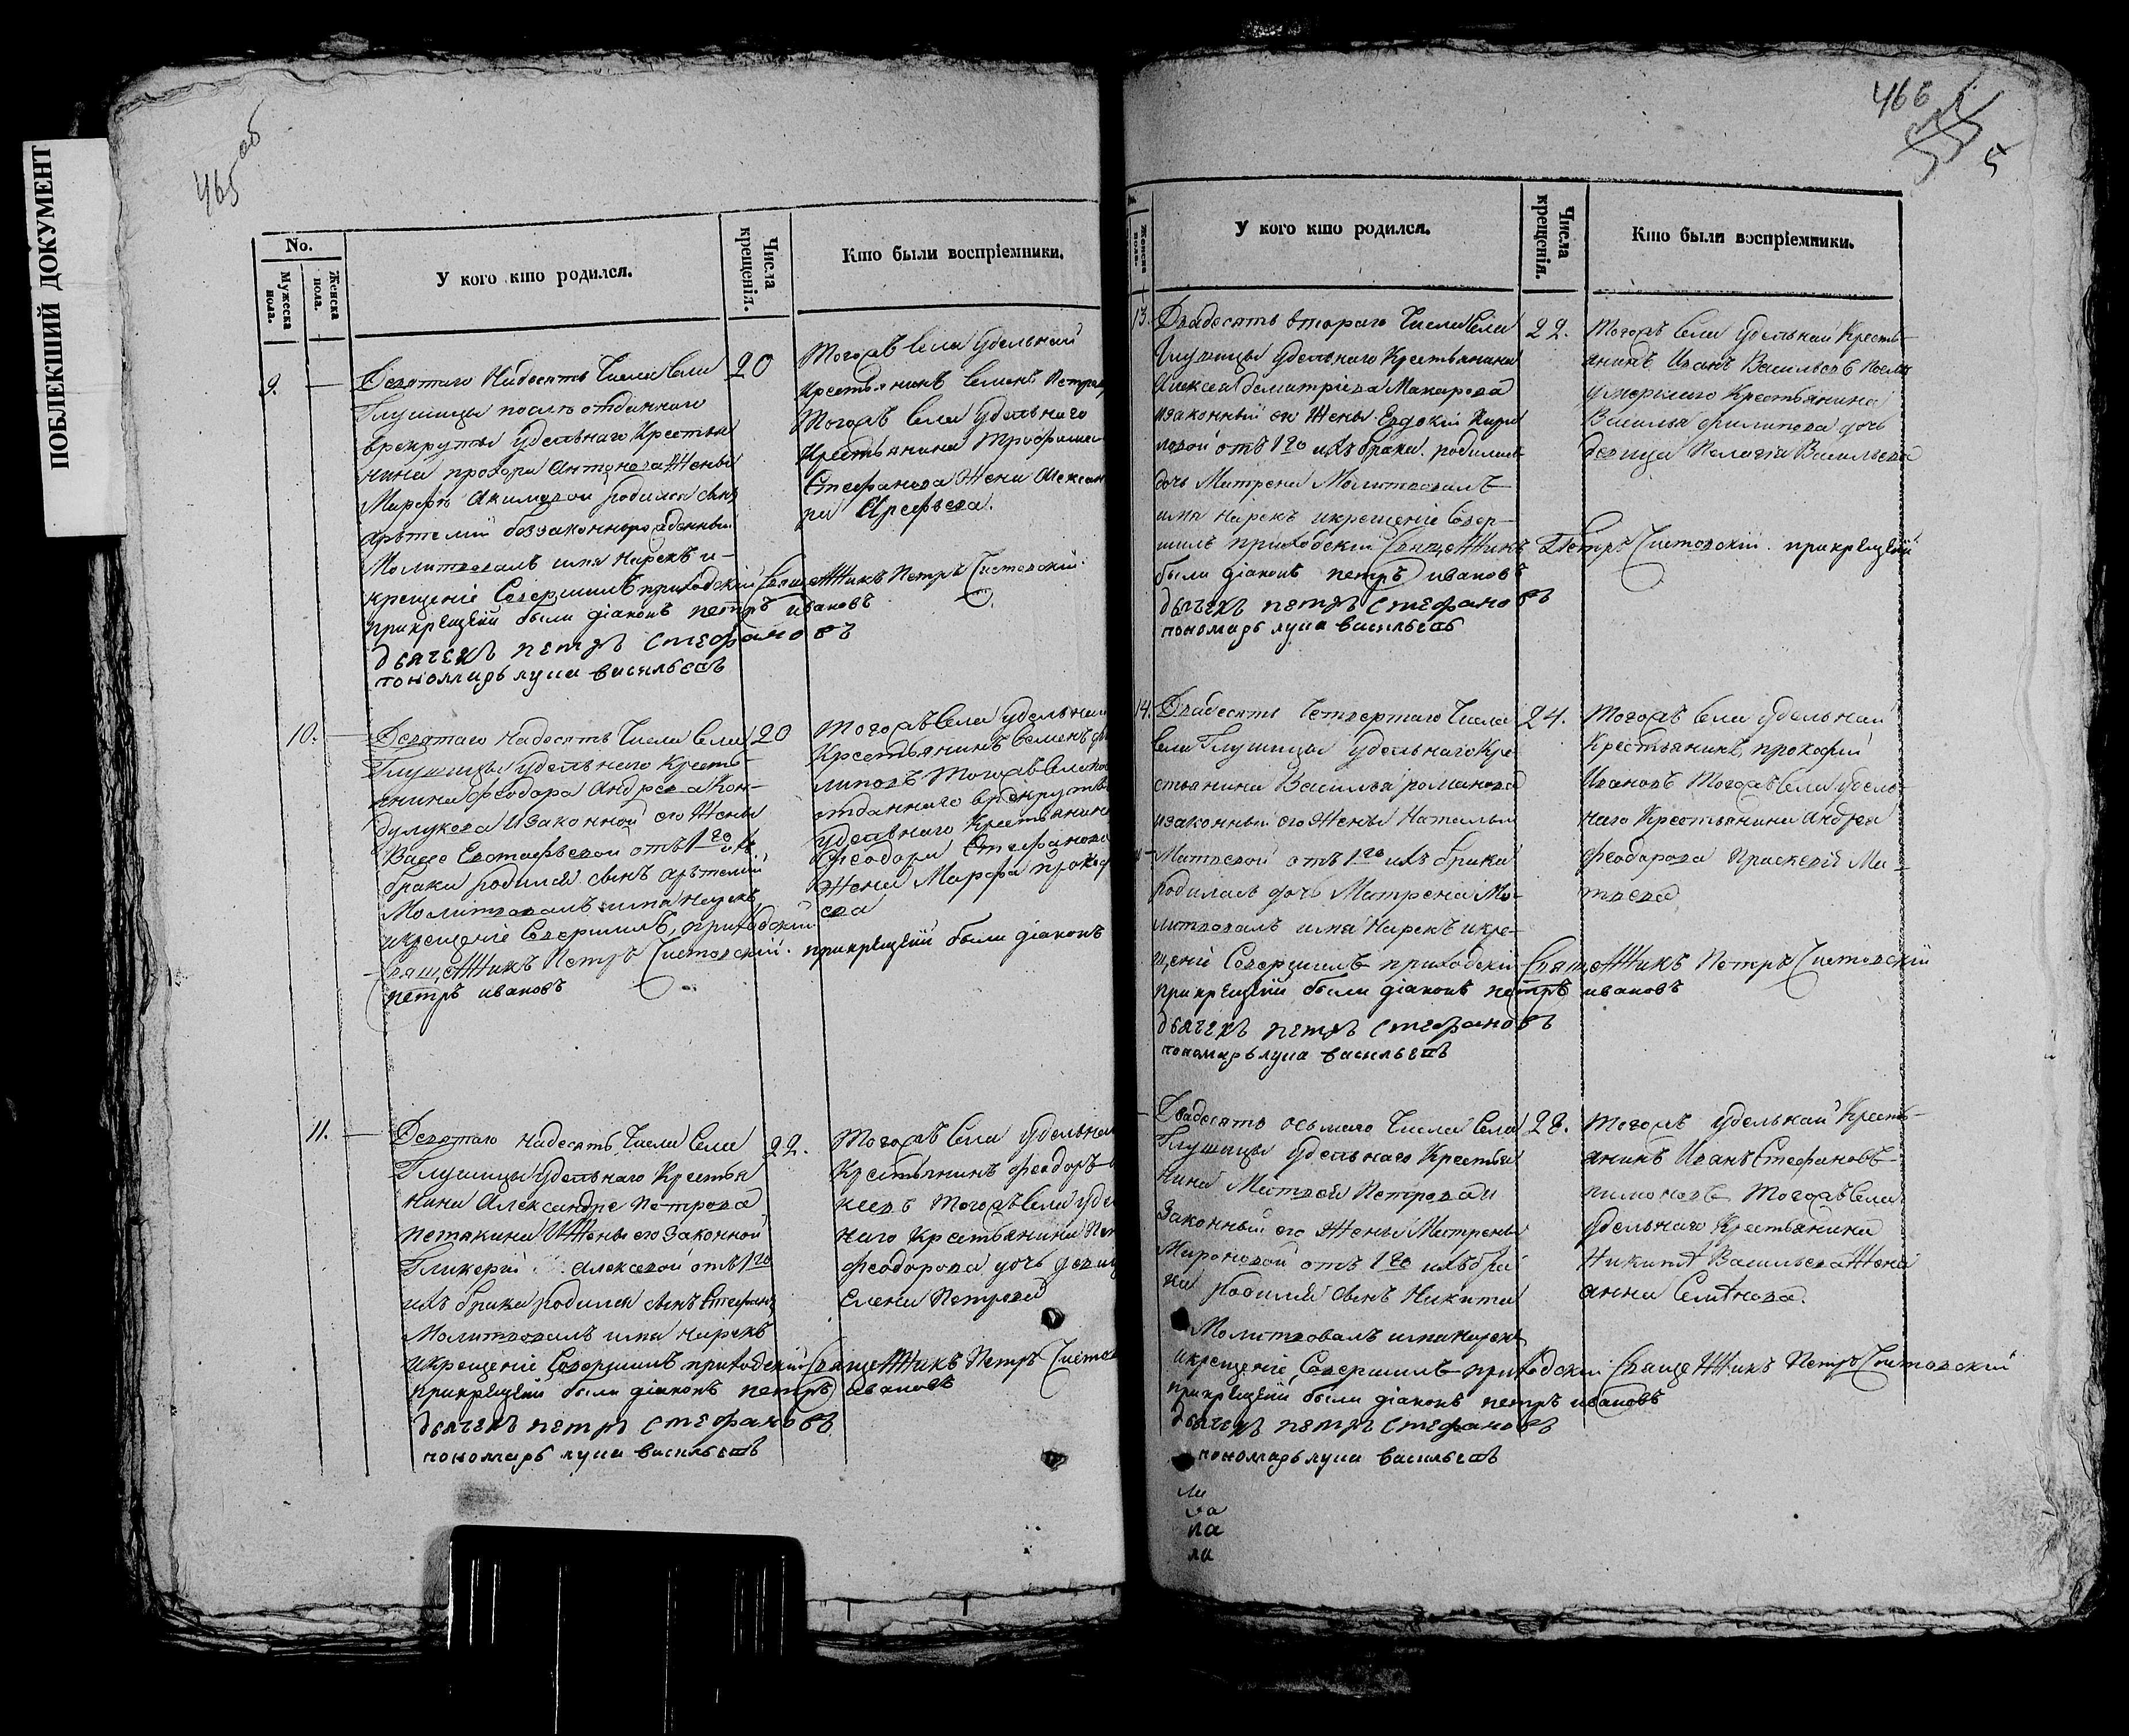 ПОБЛЕКШИЙ ДОКУМЕНТ
465 об
No.
Мужеска пола.
Женска пола.
У кого кто родился.
Числа крещенія.
Кто были воспріемники.
9.
Девятаго Надесять Числа Села
Глушицы послѣ отданнаго
врекруты Удельнаго Крестья
нина прохора Антонова Жены
Марфы Акимовой родился сынъ
Артемій беззаконнорожденный
Молитвовалъ имя Нарекъ и
крещеніе Совершилъ приходскій Священникъ Петръ Чистовскій.
прикрещеніи были діаконъ петръ ивановъ
дьячекъ петръ стефановъ
пономарь лупа васильевъ
20
Тогожъ Села Удельный
Крестьянинъ Семенъ Петров
Тогожъ Села Удельнаго
Крестьянина Трофима
Стефанова Жена Алексан
ра Арефьева.
10.
Девятаго надесять Числа Села
Глушицы Удельнаго Кресть
янина Феодора Андреева Кон-
дулукова Изаконной его Жены
Вассы Евстафьевой отъ 1го ихъ
брака родился сынъ Артемій
Молитвовалъ имя нарекъ
икрещеніе Совершилъ, приходскій
Священникъ Петръ Чистовскій. прикрещеніи были діаконъ
петръ ивановъ
20
Тогожъ Села Удельный
Крестьянинъ Семенъ Фи
липовъ Тогожъ Села по
отданнаго врекруты
Удельнаго Крестьянина
Феодора Стефанова
Жена Марфа прокоф
ева
11.
Девятаго надесять Числа Села
Глушицы Удельнаго Крестья
нина Александра Петрова
Петякина ИЖены его Законной
Гликеріи Алексевой отъ 1го
ихъ брака родился сынъ Стефанъ
Молитвовалъ имя нарекъ
икрещеніе Совершилъ приходскій Священникъ Петръ Чистов
прикрещеніи были діаконъ петръ ивановъ
дьячекъ петръ стефановъ
пономарь лупа васильевъ
22.
Тогожъ Села Удельный
Крестьянинъ Феодоръ
кеевъ Тогожъ Села Уде
наго Крестьянина Пет
Феодорова дочь девица
Елена Петрова
466
5
Женска пола.
У кого кто родился.
Числа крещенія.
Кто были воспріемники.
13.
Двадесять втораго Числа Села
Глушицы Удельнаго Крестьянина
Алексея Деметріева Макарова
изаконный его Жены Евдокіи Кири
ловой отъ 1го ихъ брака. родилась
дочь Матрена Молитвовалъ
имя нарекъ икрещеніе Совер-
шилъ приходскій Священникъ Петръ Чистовскій. прикрещеніи
были діаконъ петръ ивановъ
дьячекъ петръ стефановъ
пономарь лупа васильевъ
22.
Тогожъ Села Удельный Кресть-
янинъ Иванъ Васильевъ После
умершаго Крестьянина
Василья Филипова дочь
девица Пелагія Васильева
14.
Двадесять Четвертаго Числа
Села Глушицы Удельнаго Кре
стьянина Василья романова
изаконный его Жены Натальи
Матвевой отъ 1го ихъ брака
родилась дочь Матрена Мо-
литвовалъ имя Нарекъ икре-
щеніе Совершилъ приходскій Священникъ Петръ Чистовскій
прикрещеніи были діаконъ петръ ивановъ
дьячекъ петръ стефановъ
пономарь лупа васильевъ
24.
Тогожъ Села Удельный
Крестьянинъ, прокофій
Ивановъ Тогожъ Села Удель-
наго Крестьянина Андрея
Феодорова Праскевія Ма-
твева
Двадесять осьмаго Числа Села
Глушицы Удельнаго Крестья
нина Матвея Петрова и
Законный его Жены Матрены
Мироновой отъ 1го ихъ бра
ка родился сынъ Никита
Молитвовалъ имя нарекъ
икрещеніе Совершилъ приходскій Священникъ Петръ Чистовскій
прикрещеніи были діаконъ петръ ивановъ
дьячекъ петръ стефановъ
пономарь лупа васильевъ
28.
Тогожъ Удельный Кресть-
янинъ Иванъ Стефановъ
пимоновъ Тогожъ Села
Удельнаго Крестьянина
Никиты Васильева Жена
анна Селиѵнова.
ла
на
ла